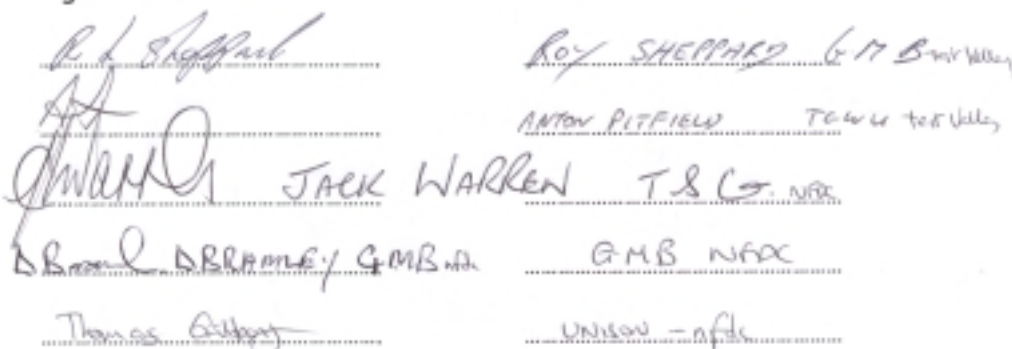 R L Sheppard ROY SHEPPARD GMB Test Valley
ANTON PITFIELD TGWU test Valley
JACK WARREN T&G. NFDC
D BRAMLEY GMB nfdc GMB NFDC
Thomas UNISON - nfdc